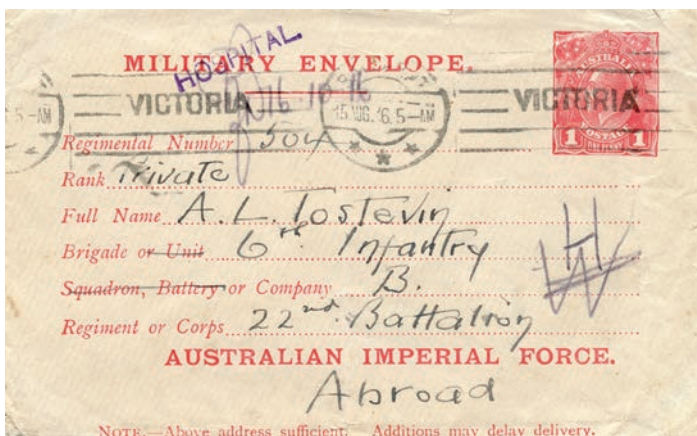 HOSPITAL
MILITARY ENVELOPE.
16.10.16
AUSTRALIA
5-AM VICTORIA 15 AUG. 16. 5-AM VICTORIA
1 POSTAGE 1
Regimental Number 504
Rank Private
Full Name A. L. Tostevin
Brigade or Unit 6th Infantry
Squadron, Battery or Company B.
Regiment or Corps 22nd Battalion
AUSTRALIAN IMPERIAL FORCE.
Abroad
NOTE.—Above address sufficient. Additions may delay delivery.